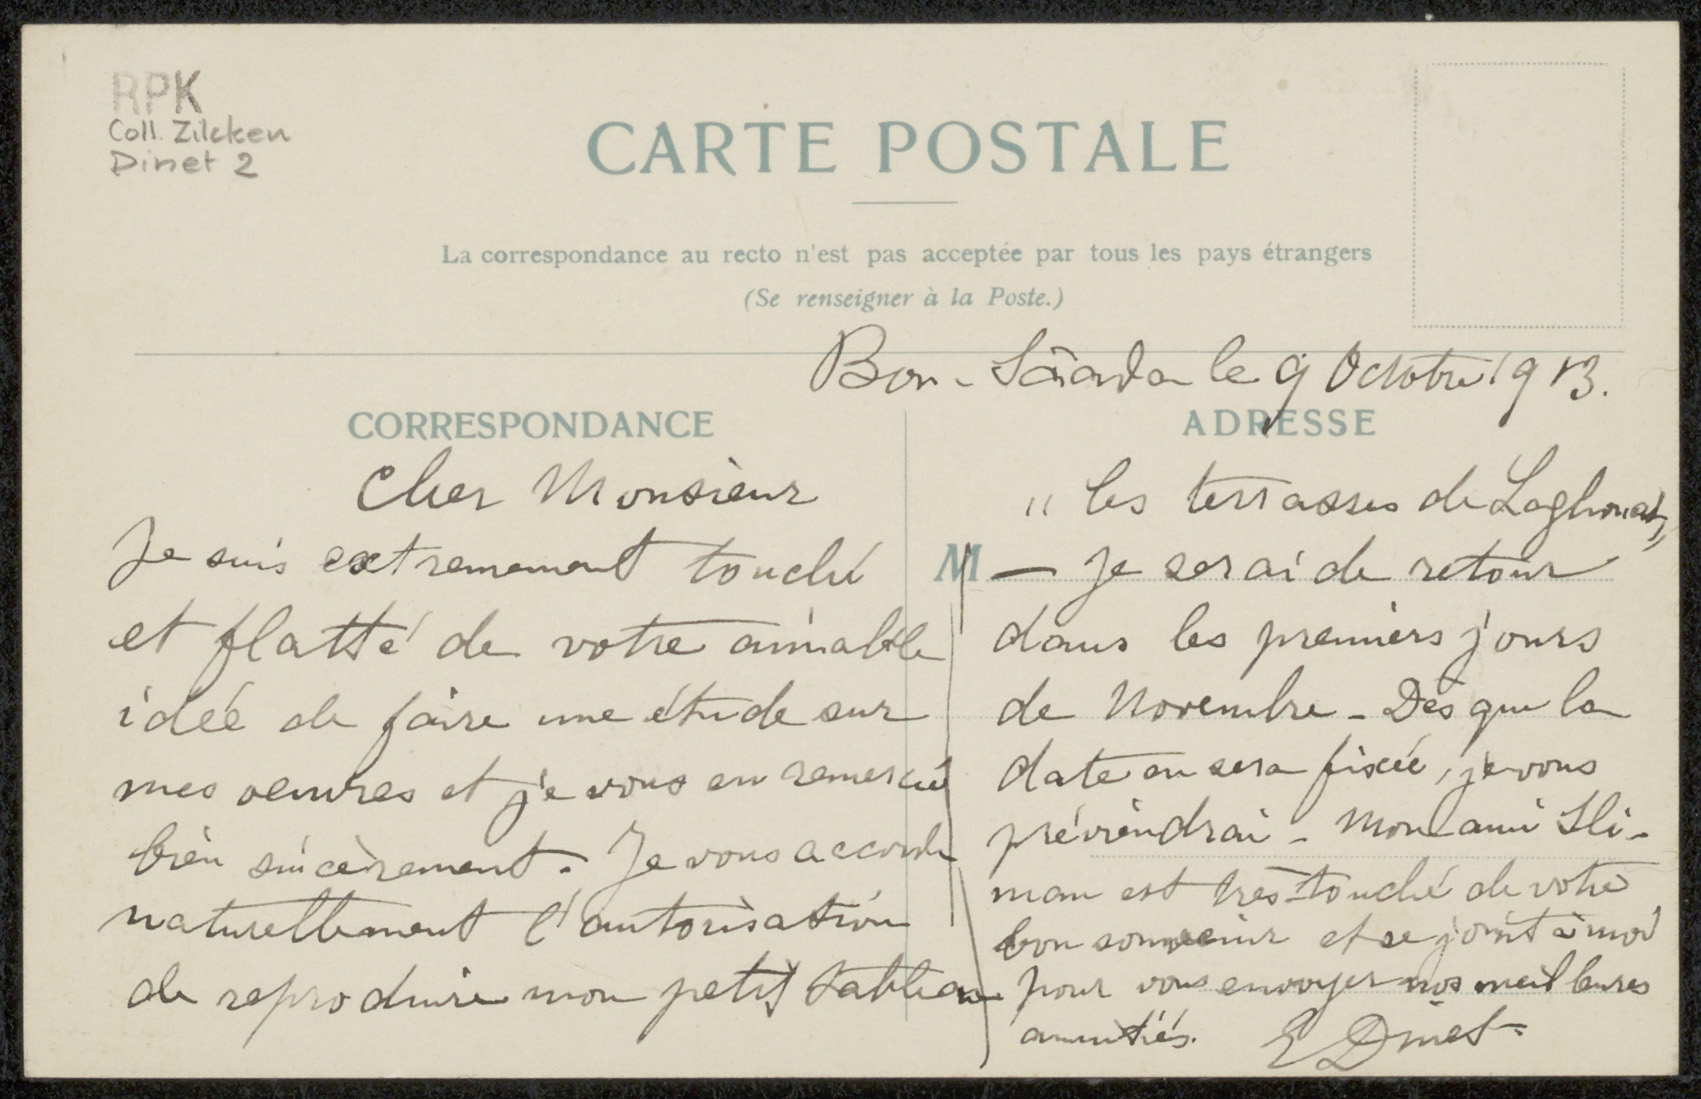 RPK
Coll. Zilcken
Dinet 2
CARTE POSTALE
La correspondance au recto n'est pas acceptée par tous les pays étrangers
(Se renseigner à la Poste.)
Bou-Sâada le 9 Octobre 1913.
CORRESPONDANCE
Cher Monsieur
Je suis extremement touché
et flatté de votre aimable
idée de faire une étude sur
mes oeuvres et je vous en remercie
bien sincèrement. Je vous accorde
naturellement l'autorisation
de reproduire mon petit tableau
ADRESSE
" les terrasses de Laghouat "
M — Je serai de retour
dans les premiers jours
de Novembre - Dès que la
date en sera fixée, je vous
préviendrai - Mon ami Sli-
man est très touché de votre
bon souvenir et se joint à moi
pour vous envoyer nos meilleures
amitiés. E Dinet